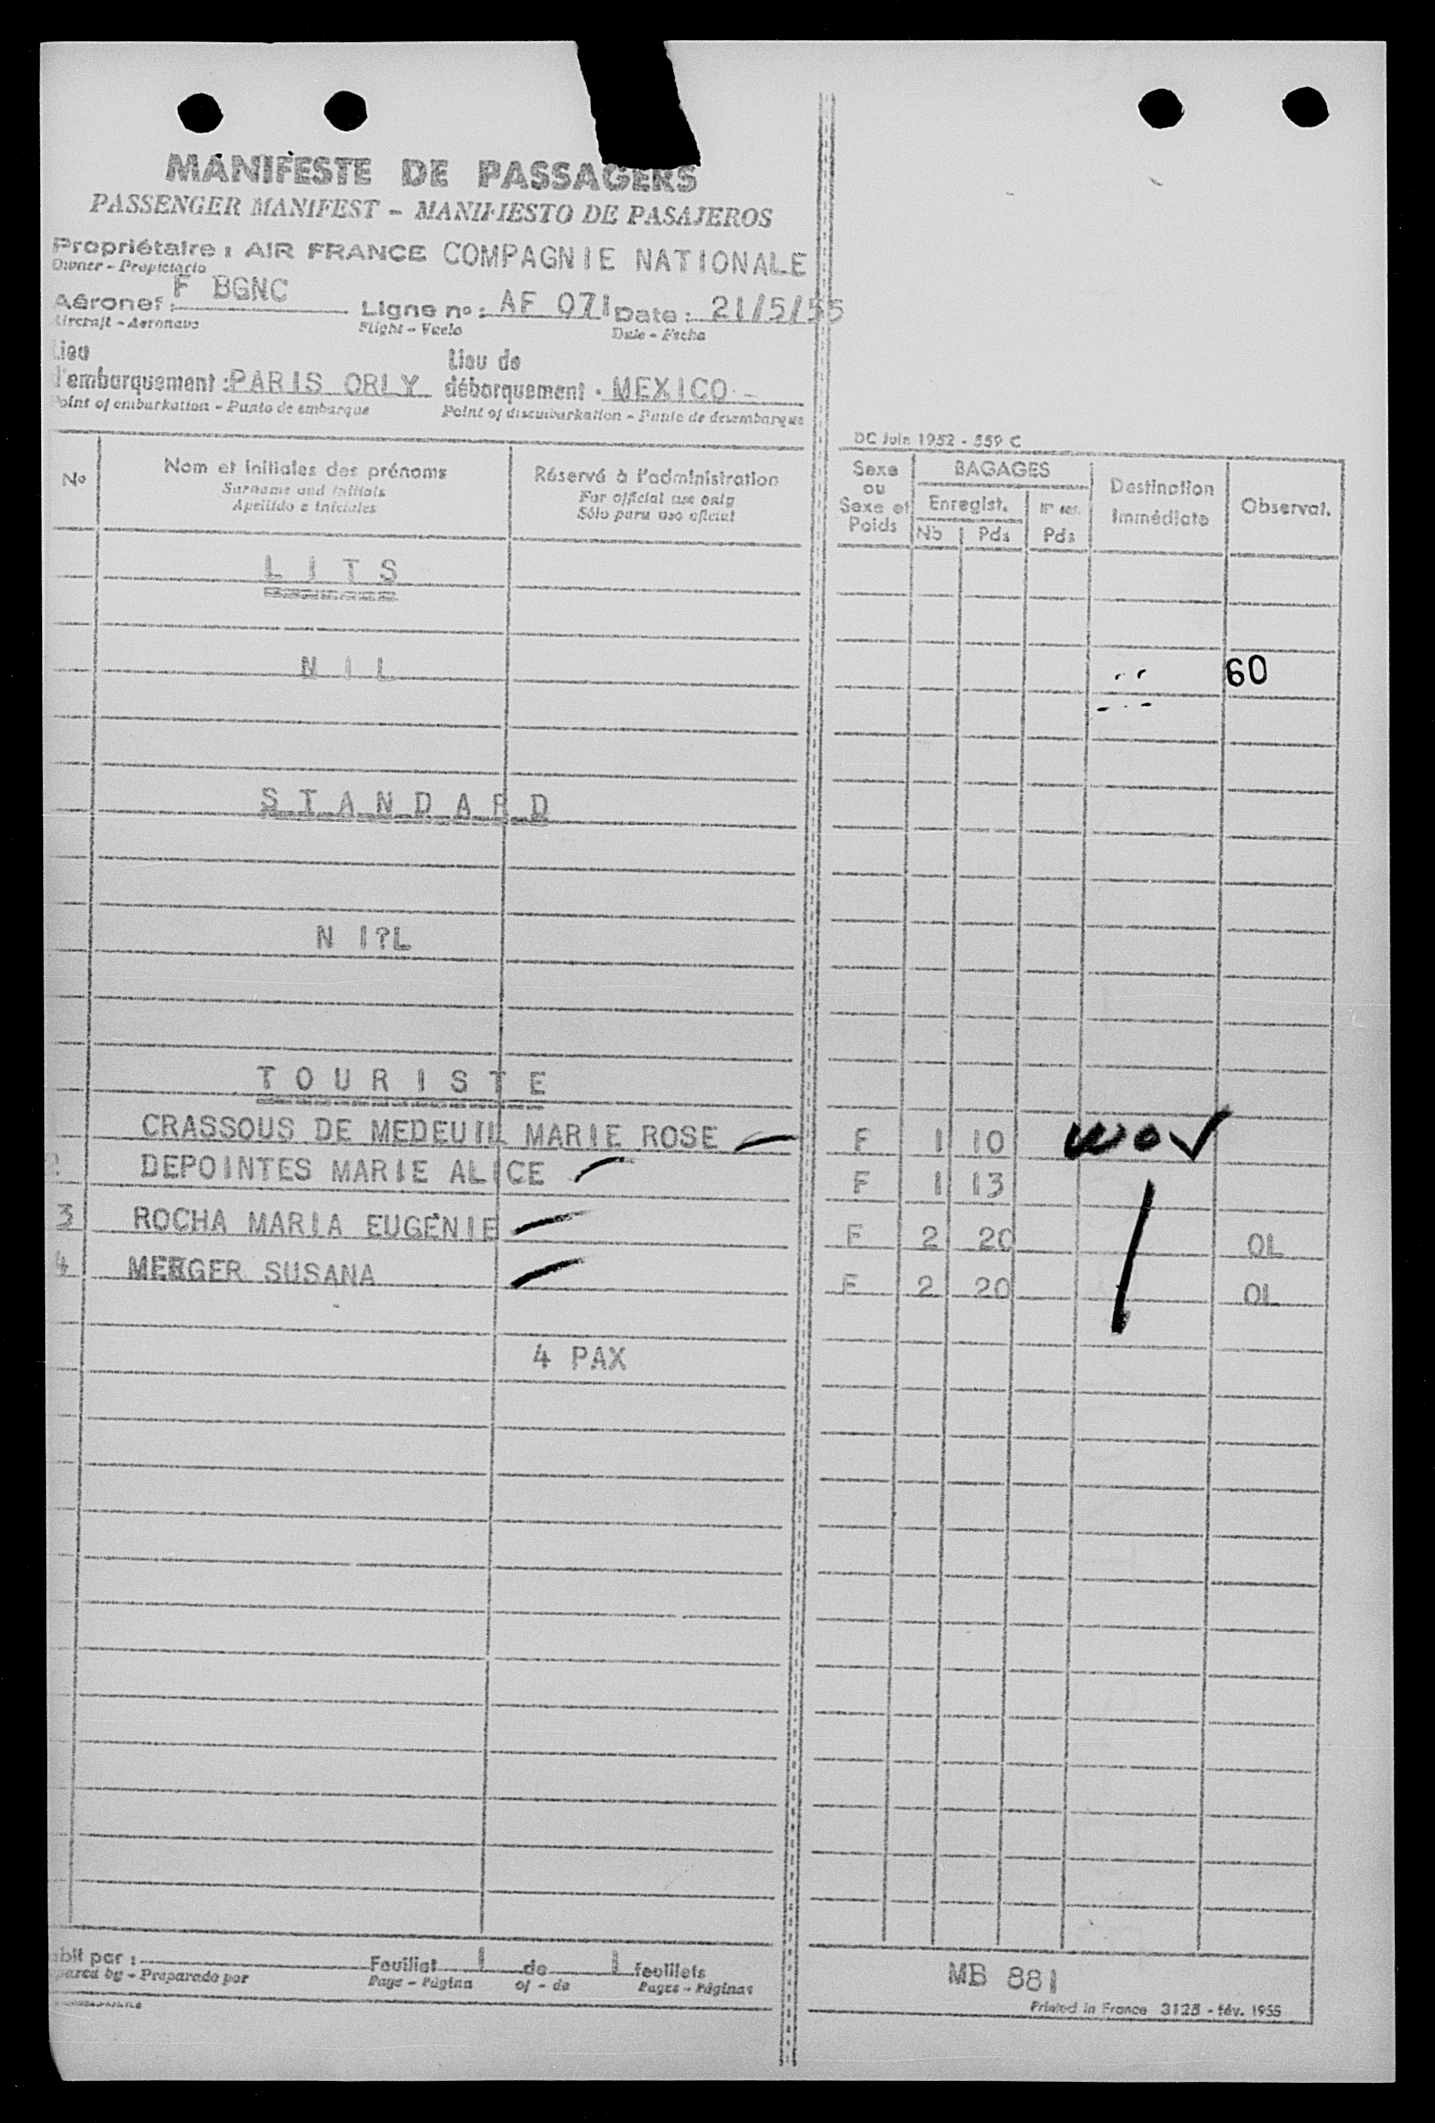 MANIFESTE DE PASSAGERS
PASSENGER MANIFEST - MANIFIESTO DE PASAJEROS
Propriétaire : AIR FRANCE COMPAGNIE NATIONALE
Owner - Propietario
Aéronef : F BGNC Ligne no : AF 071 Date : 21/5/55
Aircraft - Aeronave Flight - Vuelo Date - Fecha
Lieu Lieu de
d'embarquement : PARIS ORLY débarquement . MEXICO -
Point of embarkation - Punto de embarque Point of disembarkation - Punto de desembarque
DC Juin 1952 - 559 C
No Nom et initiales des prénoms Réservé à l'administration Sexe ou Sexe et Poids BAGAGES Destination Immédiate Observat.
Surname and initials For official use only Enregist.
Apellido e iniciales Sólo para uso oficial Nb Pds Pds
L I T S
N I L 60
S T A N D A R D
N I?L
T O U R I S T E
CRASSOUS DE MEDEUIL MARIE ROSE F 1 10
DEPOINTES MARIE ALICE F 1 13
3 ROCHA MARIA EUGENIE F 2 20 OL
4 MERGER SUSANA F 2 20 OL
4 PAX
Feuillet 1 de 1 feuillets
Prepared by - Preparado por Page - Página of - de Pages - Páginas
MB 881
Printed in France 3125 - fév. 1955